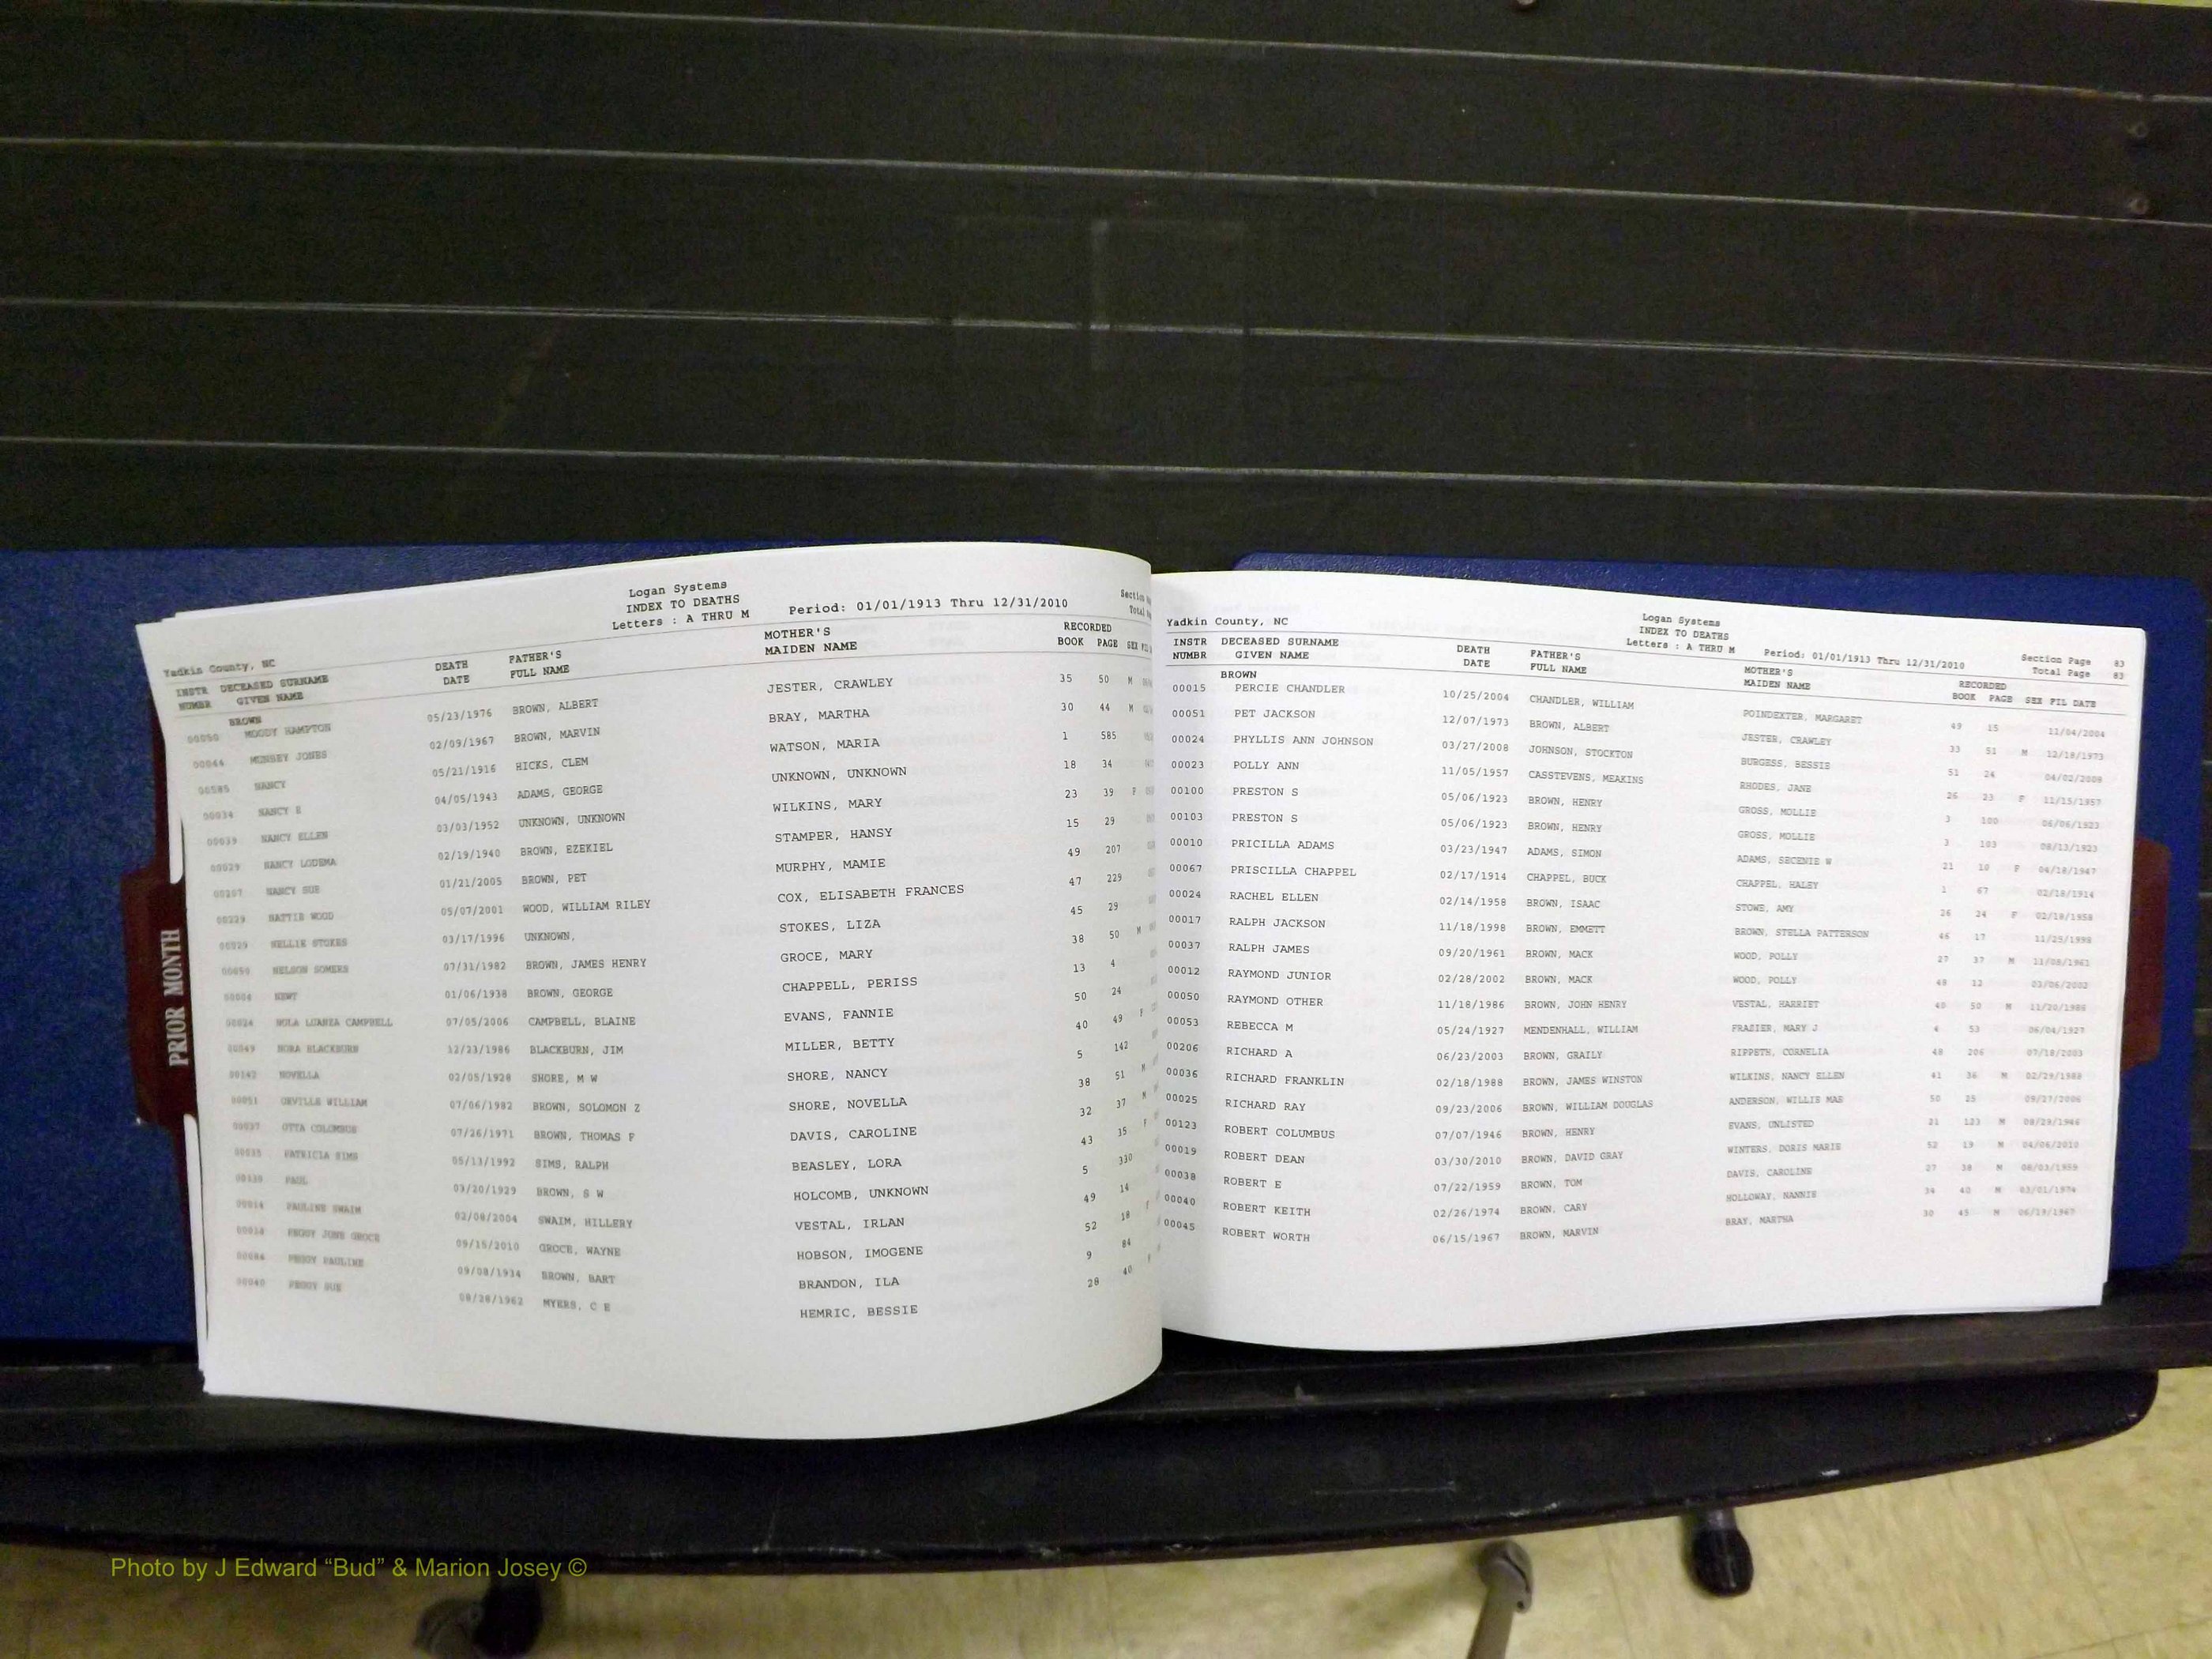 Logan Systems
INDEX TO DEATHS
Yadkin County, NC Letters : A THRU M Period: 01/01/1913 Thru 12/31/2010
INSTR DECEASED SURNAME DEATH FATHER'S MOTHER'S RECORDED
NUMBR GIVEN NAME DATE FULL NAME MAIDEN NAME BOOK PAGE SEX
BROWN
00050 MOODY HAMPTON 05/23/1976 BROWN, ALBERT JESTER, CRAWLEY 35 50 M
00044 MUNSEY JONES 02/09/1967 BROWN, MARVIN BRAY, MARTHA 30 44 M
00585 NANCY 05/21/1916 HICKS, CLEM WATSON, MARIA 1 585
00034 NANCY E 04/05/1943 ADAMS, GEORGE UNKNOWN, UNKNOWN 18 34
00039 NANCY ELLEN 03/03/1952 UNKNOWN, UNKNOWN WILKINS, MARY 23 39 F
00029 NANCY LODEMA 02/19/1940 BROWN, EZEKIEL STAMPER, HANSY 15 29
00207 NANCY SUE 01/21/2005 BROWN, PET MURPHY, MAMIE 49 207
00229 NATTIE WOOD 05/07/2001 WOOD, WILLIAM RILEY COX, ELISABETH FRANCES 47 229
00029 NELLIE STOKES 03/17/1996 UNKNOWN, STOKES, LIZA 45 29
00050 NELSON SOMERS 07/31/1982 BROWN, JAMES HENRY GROCE, MARY 38 50 M
00004 NEWT 01/06/1938 BROWN, GEORGE CHAPPELL, PERISS 13 4
00024 NOLA LUANZA CAMPBELL 07/05/2006 CAMPBELL, BLAINE EVANS, FANNIE 50 24
00049 NORA BLACKBURN 12/23/1986 BLACKBURN, JIM MILLER, BETTY 40 49 F
00142 NOVELLA 02/05/1928 SHORE, M W SHORE, NANCY 5 142
00051 ORVILLE WILLIAM 07/06/1982 BROWN, SOLOMON Z SHORE, NOVELLA 38 51 M
00037 OTTA COLOMBUS 07/26/1971 BROWN, THOMAS F DAVIS, CAROLINE 32 37 M
00035 PATRICIA SIMS 05/13/1992 SIMS, RALPH BEASLEY, LORA 43 35 F
PAUL 03/20/1929 BROWN, S W HOLCOMB, UNKNOWN 5 330
00014 PAULINE SWAIM 02/08/2004 SWAIM, HILLERY VESTAL, IRLAN 49 14
00018 PEGGY JUNE GROCE 09/15/2010 GROCE, WAYNE HOBSON, IMOGENE 52 18
00084 PEGGY PAULINE 09/08/1934 BROWN, BART BRANDON, ILA 9 84
00040 PEGGY SUE 08/28/1962 MYERS, C E HEMRIC, BESSIE 28 40 F
PRIOR MONTH
Logan Systems
INDEX TO DEATHS
Yadkin County, NC Letters : A THRU M Period: 01/01/1913 Thru 12/31/2010 Section Page 83
Total Page 83
INSTR DECEASED SURNAME DEATH FATHER'S MOTHER'S RECORDED
NUMBR GIVEN NAME DATE FULL NAME MAIDEN NAME BOOK PAGE SEX FIL DATE
BROWN
00015 PERCIE CHANDLER 10/25/2004 CHANDLER, WILLIAM POINDEXTER, MARGARET 49 15 11/04/2004
00051 PET JACKSON 12/07/1973 BROWN, ALBERT JESTER, CRAWLEY 33 51 M 12/18/1973
00024 PHYLLIS ANN JOHNSON 03/27/2008 JOHNSON, STOCKTON BURGESS, BESSIE 51 24 04/02/2008
00023 POLLY ANN 11/05/1957 CASSTEVENS, MEAKINS RHODES, JANE 26 23 F 11/15/1957
00100 PRESTON S 05/06/1923 BROWN, HENRY GROSS, MOLLIE 3 100 06/06/1923
00103 PRESTON S 05/06/1923 BROWN, HENRY GROSS, MOLLIE 3 103 08/13/1923
00010 PRICILLA ADAMS 03/23/1947 ADAMS, SIMON ADAMS, SECENIE W 21 10 F 04/18/1947
00067 PRISCILLA CHAPPEL 02/17/1914 CHAPPEL, BUCK CHAPPEL, HALEY 1 67 02/18/1914
00024 RACHEL ELLEN 02/14/1958 BROWN, ISAAC STOWE, AMY 26 24 F 02/18/1958
00017 RALPH JACKSON 11/18/1998 BROWN, EMMETT BROWN, STELLA PATTERSON 46 17 11/25/1998
00037 RALPH JAMES 09/20/1961 BROWN, MACK WOOD, POLLY 27 37 M 11/08/1961
00012 RAYMOND JUNIOR 02/28/2002 BROWN, MACK WOOD, POLLY 48 12 03/06/2002
00050 RAYMOND OTHER 11/18/1986 BROWN, JOHN HENRY VESTAL, HARRIET 40 50 M 11/20/1986
00053 REBECCA M 05/24/1927 MENDENHALL, WILLIAM FRASIER, MARY J 4 53 06/04/1927
00206 RICHARD A 06/23/2003 BROWN, GRAILY RIPPETH, CORNELIA 48 206 07/18/2003
00036 RICHARD FRANKLIN 02/18/1988 BROWN, JAMES WINSTON WILKINS, NANCY ELLEN 41 36 M 02/29/1988
00025 RICHARD RAY 09/23/2006 BROWN, WILLIAM DOUGLAS ANDERSON, WILLIE MAE 50 25 09/27/2006
00123 ROBERT COLUMBUS 07/07/1946 BROWN, HENRY EVANS, UNLISTED 21 123 M 08/29/1946
00019 ROBERT DEAN 03/30/2010 BROWN, DAVID GRAY WINTERS, DORIS MARIE 52 19 M 04/06/2010
00038 ROBERT E 07/22/1959 BROWN, TOM DAVIS, CAROLINE 27 38 M 08/03/1959
00040 ROBERT KEITH 02/26/1974 BROWN, CARY HOLLOWAY, NANNIE 34 40 M 03/01/1974
00045 ROBERT WORTH 06/15/1967 BROWN, MARVIN BRAY, MARTHA 30 45 M 06/19/1967
Photo by J Edward “Bud” & Marion Josey ©